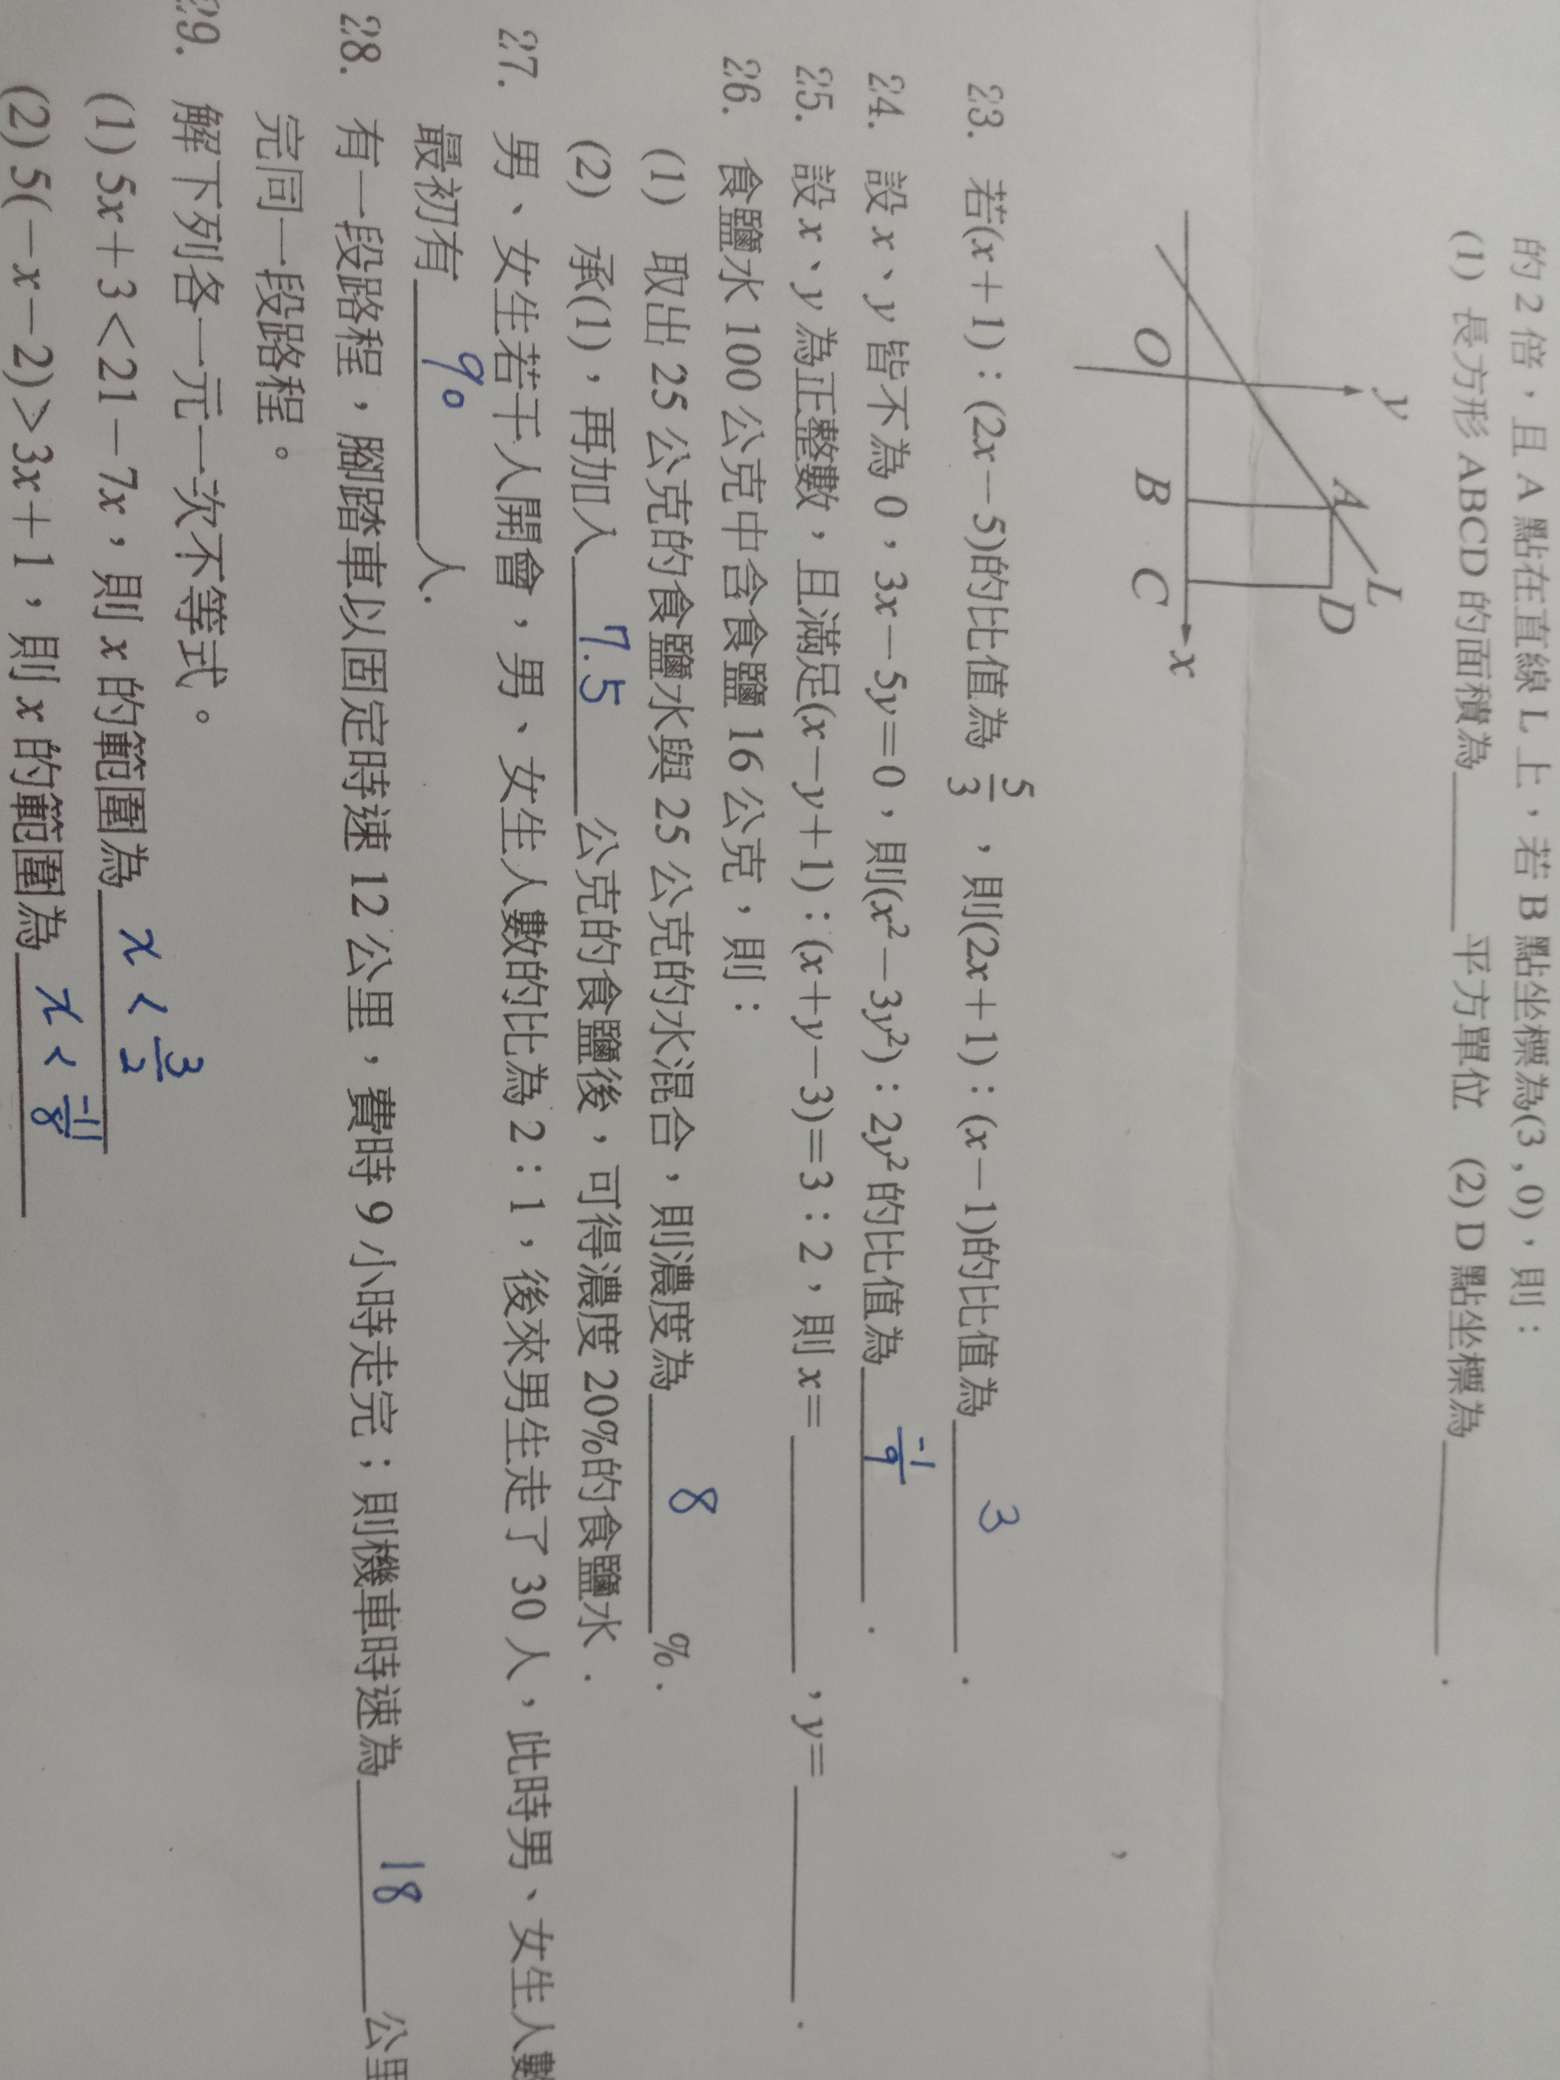 的 2 倍，且 A 點在直線 L 上，若 B 點坐標為(3 , 0)，則：
(1) 長方形 ABCD 的面積為________平方單位 (2) D 點坐標為________．
y
L
A
D
O
B
C
x
23. 若(x＋1)：(2x－5)的比值為 5/3 ，則(2x＋1)：(x－1)的比值為 3 ．
24. 設 x、y 皆不為 0，3x－5y＝0，則(x²－3y²)：2y²的比值為 -1/9 ．
25. 設 x、y 為正整數，且滿足(x－y＋1)：(x＋y－3)＝3：2，則 x＝________，y＝________．
26. 食鹽水 100 公克中含食鹽 16 公克，則：
(1) 取出 25 公克的食鹽水與 25 公克的水混合，則濃度為 8 %．
(2) 承(1)，再加入 7.5 公克的食鹽後，可得濃度 20%的食鹽水．
27. 男、女生若干人開會，男、女生人數的比為 2：1，後來男生走了 30 人，此時男、女生人數
最初有 90 人．
28. 有一段路程，腳踏車以固定時速 12 公里，費時 9 小時走完；則機車時速為 18 公里
完同一段路程。
29. 解下列各一元一次不等式。
(1) 5x＋3＜21－7x，則 x 的範圍為 x < 3/2
(2) 5(－x－2)＞3x＋1，則 x 的範圍為 x < -11/8